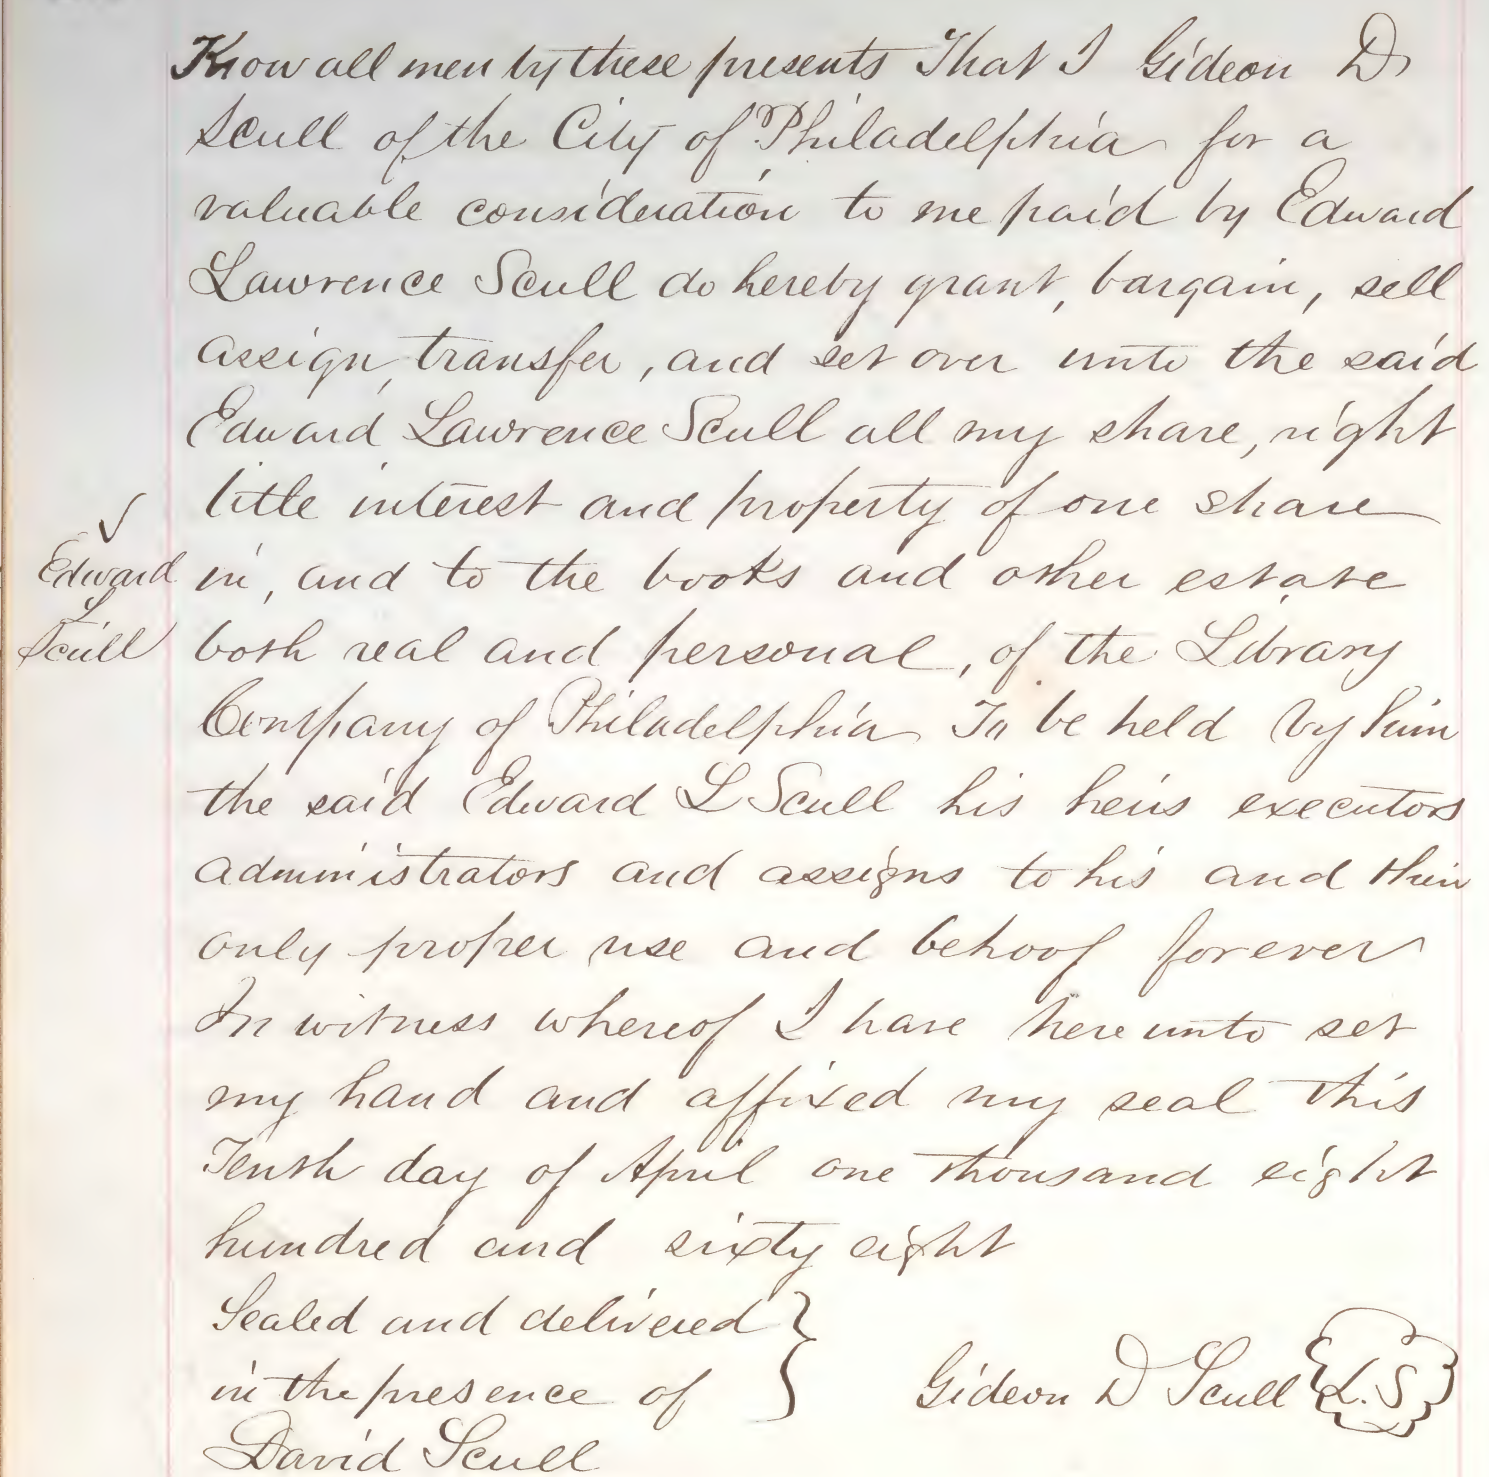 Know all men by these presents That I Gideon D
Scull of the City of Philadelphia for a
valuable consideration to me paid by Edward
Lawrence Scull do hereby grant, bargain, sell
assign, transfer, and set over unto the said
Edward Lawrence Scull all my share, right
title interest and property of one share
✓
Edward
L
Scull
in, and to the books and other estate
both real and personal, of the Library
Company of Philadelphia To be held by him
the said Edward L Scull his heirs executors
administrators and assigns to his and their
only proper use and behoof forever
In witness whereof I have hereunto set
my hand and affixed my seal this
Tenth day of April one thousand eight
hundred and sixty eight
Sealed and delivered }
in the presence of
Gideon D Scull L.S
David Scull